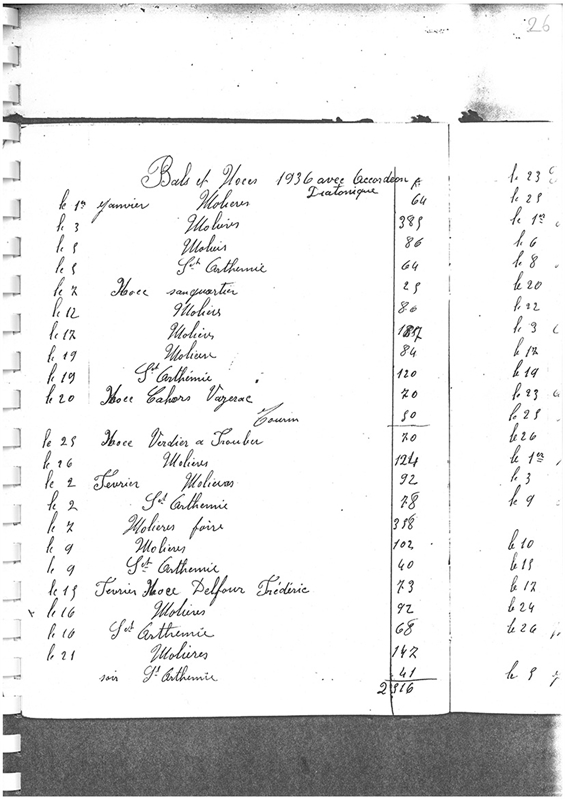 26
Bals et Noces 1936 avec Accordeon
Diatonique fr
le 1er Janvier Molieres 64
le 3 Molières 385
le 5 Molieis 86
le 5 St Arthemie 64
le 7 Noce sanquartier 25
le 12 Molièrs 86
le 17 Molièrs
le 19 Moliere 84
le 19 St Arthémie 120
le 20 Noce Cahors Vazerac 70
50
le 25 Noce Verdier a 70
le 26 Molières 124
le 2 Fevrier Molieres 92
le 2 St Arthemie 78
le 7 Molieres foire 358
le 9 Molières 102
le 9 St Arthemie 40
le 15 Fevrier Noce Delfour Frédéric 73
le 16 Molières 92
le 16 St Arthemie 68
le 21 Molières 147
soir St Arthemie 41
2316
le 23
le 25
le 1er
le 6
le 8
le 20
le 22
le 3
le 17
le 19
le 23
le 25
le 26
le 1er
le 3
le 9
le 10
le 15
le 17
le 24
le 26
le 5